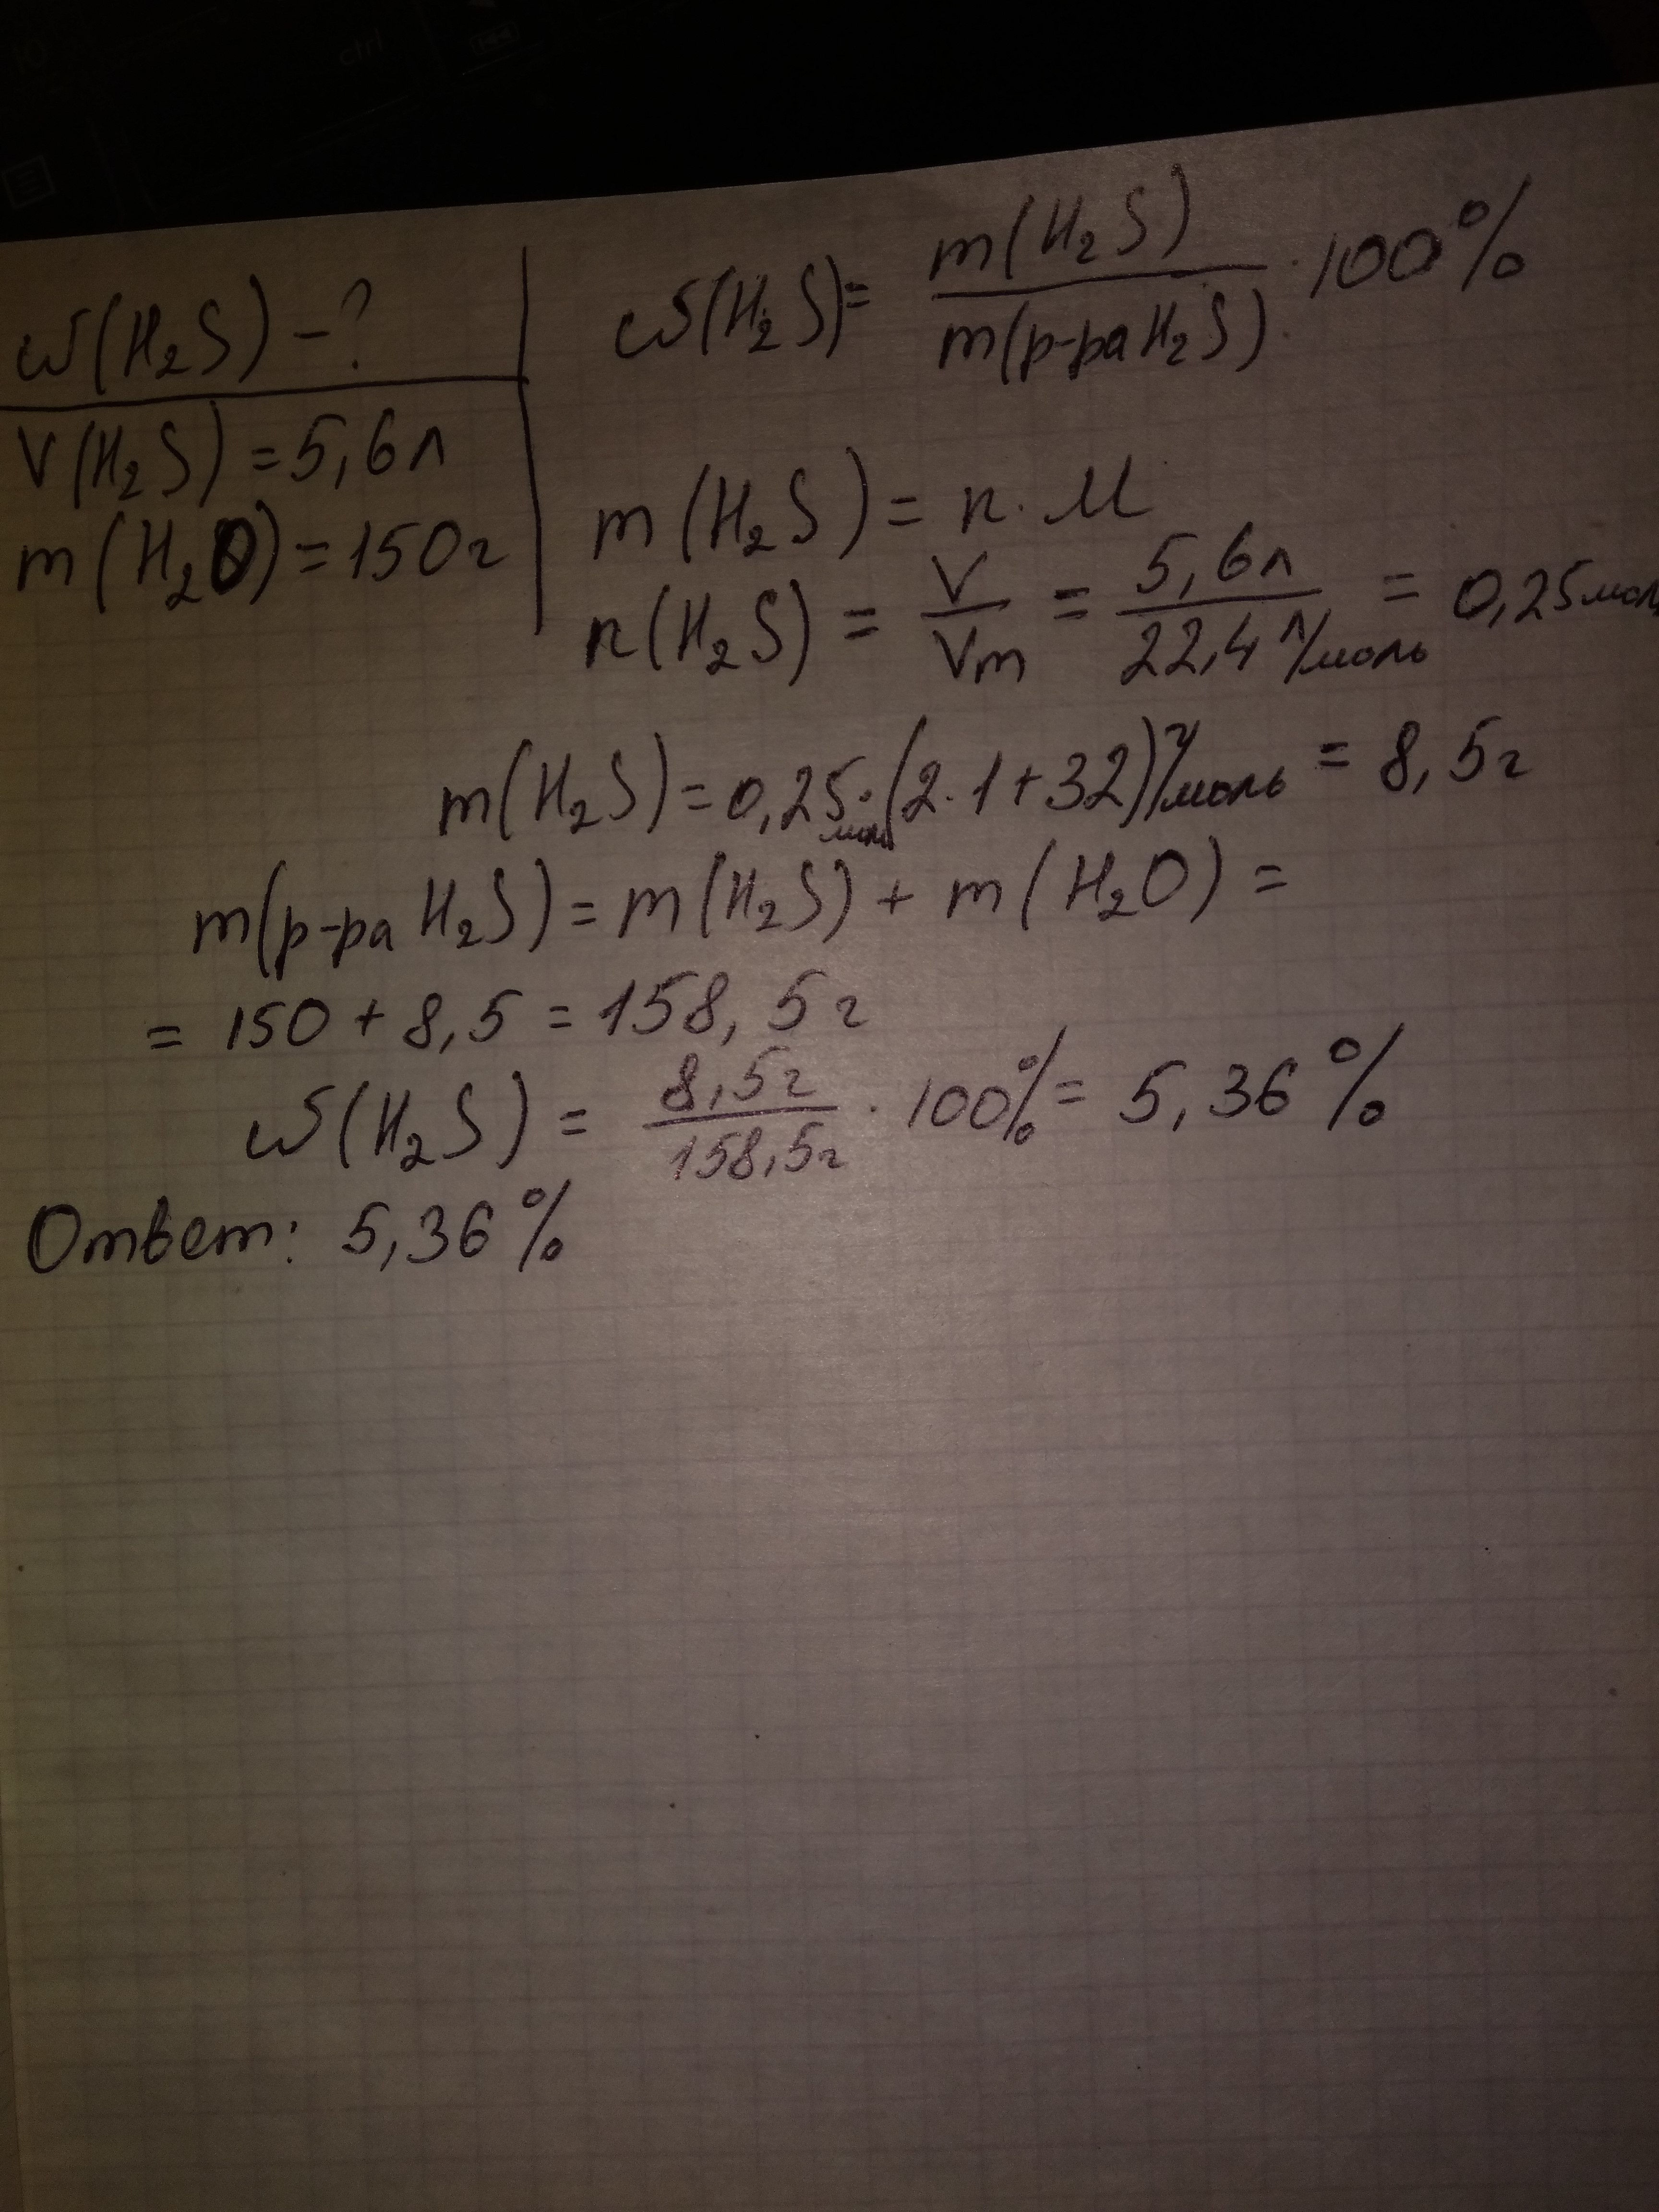 ctrl
ω(H₂S) - ?
V(H₂S) = 5,6л
m(H₂O) = 150г
ω(H₂S) = m(H₂S) / m(р-ра H₂S) · 100%
m(H₂S) = n · M
n(H₂S) = V / Vm = 5,6л / 22,4 л/моль = 0,25моль
m(H₂S) = 0,25моль · (2·1+32) г/моль = 8,5г
m(р-ра H₂S) = m(H₂S) + m(H₂O) =
= 150 + 8,5 = 158,5г
ω(H₂S) = 8,5г / 158,5г · 100% = 5,36%
Ответ: 5,36%